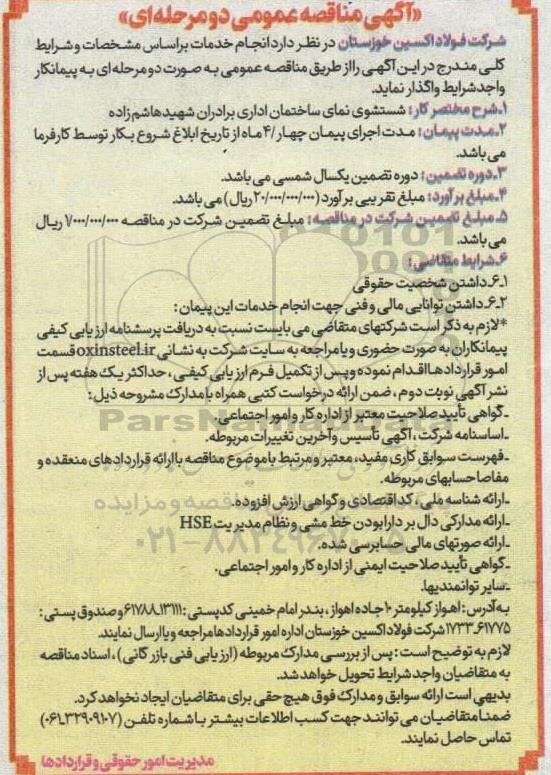 «آگهی مناقصه عمومی دو مرحله ای»
شرکت فولاد اکسین خوزستان در نظر دارد انجام خدمات براساس مشخصات و شرایط
کلی مندرج در این آگهی را از طریق مناقصه عمومی به صورت دو مرحله ای به پیمانکار
واجد شرایط واگذار نماید.
۱ـ شرح مختصر کار: شستشوی نمای ساختمان اداری برادران شهید هاشم زاده
۲ـ مدت پیمان: مدت اجرای پیمان چهار/۴ ماه از تاریخ ابلاغ شروع بکار توسط کارفرما
می باشد.
۳ـ دوره تضمین: دوره تضمین یکسال شمسی می باشد.
۴ـ مبلغ برآورد: مبلغ تقریبی برآورد (۲۰/۰۰۰/۰۰۰/۰۰۰ ریال) می باشد.
۵ـ مبلغ تضمین شرکت در مناقصه: مبلغ تضمین شرکت در مناقصه ۱/۰۰۰/۰۰۰/۰۰۰ ریال
می باشد.
۶ـ شرایط متقاضی:
۶ـ۱ داشتن شخصیت حقوقی
۶ـ۲ داشتن توانایی مالی و فنی جهت انجام خدمات این پیمان:
*لازم به ذکر است شرکتهای متقاضی می بایست نسبت به دریافت پرسشنامه ارزیابی کیفی
پیمانکاران به صورت حضوری و یا مراجعه به سایت شرکت به نشانی oxinsteel.ir قسمت
امور قراردادها اقدام نموده و پس از تکمیل فرم ارزیابی کیفی، حداکثر یک هفته پس از
نشر آگهی نوبت دوم، ضمن ارائه درخواست کتبی همراه با مدارک مشروحه ذیل:
ـ گواهی تأیید صلاحیت معتبر از اداره کار و امور اجتماعی.
ParsNamadData
ـ اساسنامه شرکت، آگهی تأسیس و آخرین تغییرات مربوطه.
ـ فهرست سوابق کاری مفید، معتبر و مرتبط با موضوع مناقصه با ارائه قراردادهای منعقده و
مفاصا حسابهای مربوطه.
ـ ارائه شناسه ملی، کد اقتصادی و گواهی ارزش افزوده.
ـ ارائه مدارکی دال بر دارا بودن خط مشی و نظام مدیریت HSE
۰۲۱-۸۸۳۴۹۶۷۰-۵
ـ ارائه صورتهای مالی حسابرسی شده.
ـ گواهی تأیید صلاحیت ایمنی از اداره کار و امور اجتماعی.
ـ سایر توانمندیها.
به آدرس: اهواز کیلومتر ۱۰ جاده اهواز، بندر امام خمینی کدپستی: ۱۳۱۱۱ـ۶۱۷۸۸ و صندوق پستی:
۶۱۷۷۵ـ۱۷۳۳ شرکت فولاد اکسین خوزستان اداره امور قراردادها مراجعه و یا ارسال نمایند.
لازم به توضیح است: پس از بررسی مدارک مربوطه (ارزیابی فنی بازرگانی)، اسناد مناقصه
به متقاضیان واجد شرایط تحویل خواهد شد.
بدیهی است ارائه سوابق و مدارک فوق هیچ حقی برای متقاضیان ایجاد نخواهد کرد.
ضمنا متقاضیان می توانند جهت کسب اطلاعات بیشتر با شماره تلفن (۳۲۹۰۹۱۰۷ـ۰۶۱)
تماس حاصل نمایند.
مدیریت امور حقوقی و قراردادها